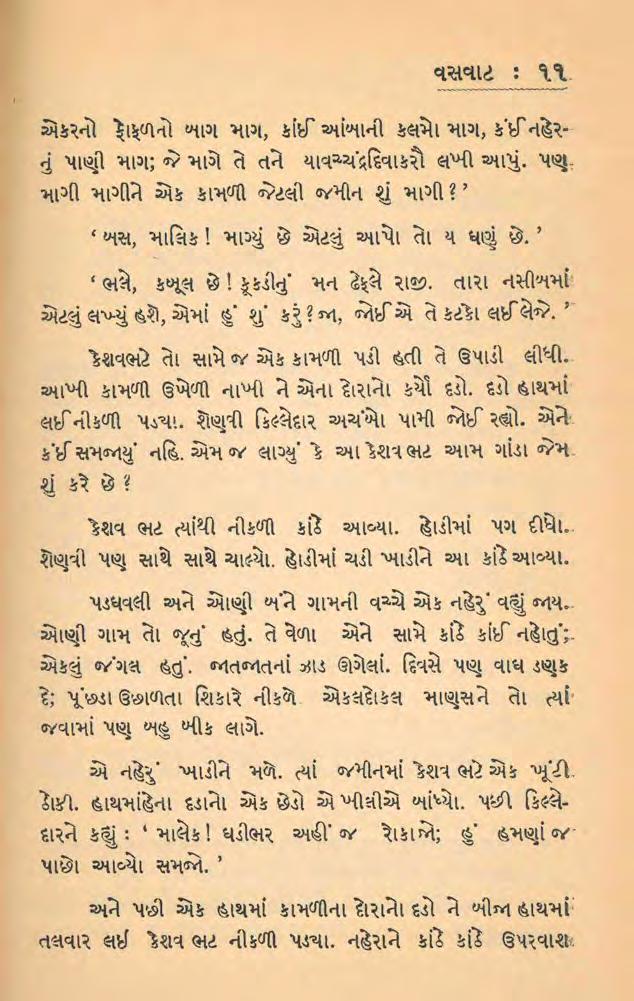 વસવાટ : ૧૧
એકરનો ફોફળનો બાગ માગ, કાંઈ આંબાની કલમો માગ, કંઈ નહેર-
નું પાણી માગ; જે માગે તે તને યાવચ્ચંદ્રદિવાકરૌ લખી આપું. પણ
માગી માગીને એક કામળી જેટલી જમીન શું માગી?’
‘બસ, માલિક! માગ્યું છે એટલું આપો તો ય ઘણું છે.’
‘ભલે, કબૂલ છે! કૂકડીનું મન ઢેફલે રાજી. તારા નસીબમાં
એટલું લખ્યું હશે, એમાં હું શું કરું? જા, જોઈએ તે કટકો લઈ લેજે.’
કેશવભટે તો સામે જ એક કામળી પડી હતી તે ઉપાડી લીધી.
આખી કામળી ઉખેળી નાખી ને એના દોરાનો કર્યો દડો. દડો હાથમાં
લઈ નીકળી પડયા. શેણવી કિલ્લેદાર અચંબો પામી જોઈ રહ્યો. એને
કંઈ સમજાયું નહિ. એમ જ લાગ્યું કે આ કેશવ ભટ આમ ગાંડા જેમ
શું કરે છે?
કેશવ ભટ ત્યાંથી નીકળી કાંઠે આવ્યા. હોડીમાં પગ દીધો.
શેણવી પણ સાથે સાથે ચાલ્યો. હોડીમાં ચડી ખાડીને આ કાંઠે આવ્યા.
પડઘવલી અને ઓણી બંને ગામની વચ્ચે એક નહેરું વહ્યું જાય.
ઓણી ગામ તો જૂનું હતું. તે વેળા એને સામે કાંઠે કાંઈ નહોતું;
એકલું જંગલ હતું. જાતજાતનાં ઝાડ ઊગેલાં. દિવસે પણ વાઘ ડણક
દે; પૂંછડા ઉછાળતા શિકારે નીકળે. એકલદોકલ માણસને તો ત્યાં
જવામાં પણ બહુ બીક લાગે.
એ નહેરું ખાડીને મળે. ત્યાં જમીનમાં કેશવ ભટે એક ખૂંટી
ઠોકી. હાથમાંહેના દડાનો એક છેડો એ ખીલીએ બાંધ્યો. પછી કિલ્લે-
દારને કહ્યું : ‘માલેક! ઘડીભર અહીં જ રોકાજો; હું હમણાં જ
પાછો આવ્યો સમજો.’
અને પછી એક હાથમાં કામળીના દોરાનો દડો ને બીજા હાથમાં
તલવાર લઈ કેશવ ભટ નીકળી પડયા. નહેરાને કાંઠે કાંઠે ઉપરવાશ